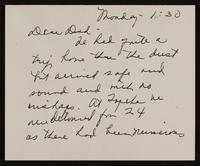 Monday - 1:30
Dear Dad -
We had quite a
trip home thru the dust
but arrived safe and
sound and with no
mishaps. At Topeka we
were detoured for 24
as there had been numerous